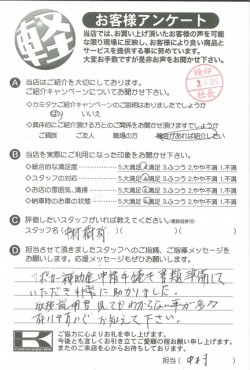 軽
お客様アンケート
当店では、お買い上げ頂いたお客様の声を可能
な限り現場に反映し、お客様により良い商品と
サービスを提供する事に努めています。
大変お手数ですが是非お声をお聞かせ下さい。
A 当店はご紹介を大切にしております。
ご紹介キャンペーンについてお聞かせ下さい
◇カミタケご紹介キャンペーンのご説明はありましたでしょうか
はい いいえ
◇具体的にご紹介頂ける方とのご関係をお聞かせ頂けますでしょうか
ご親族 ご友人 職場の方 機会があれば紹介したい
B 当店を実際にご利用になった印象をお聞かせ下さい。
◇総合的な満足度 5.大満足 4.満足 3.ふつう 2.やや不満 1.不満
◇スタッフの対応 5.大満足 4.満足 3.ふつう 2.やや不満 1.不満
◇お店の雰囲気、清掃 5.大満足 4.満足 3.ふつう 2.やや不満 1.不満
◇納車時のお車の状態 5.大満足 4.満足 3.ふつう 2.やや不満 1.不満
C 評価したいスタッフがいれば教えてください。(複数回答可)
スタッフ名( 中村 )
D 担当させて頂きましたスタッフへのご指摘、ご指導メッセージを
お願いします。応援メッセージもぜひお願いします！
補助金申請
書類準備して
いただき非常に助かりました。
見てもわからない事が多々
ご協力に心よりお礼を申し上げます。
今後とも宜しくお引き立てご愛顧の程お願い申し上げます。
またのご来店を心からお待ちしております。
担当( 中村 )